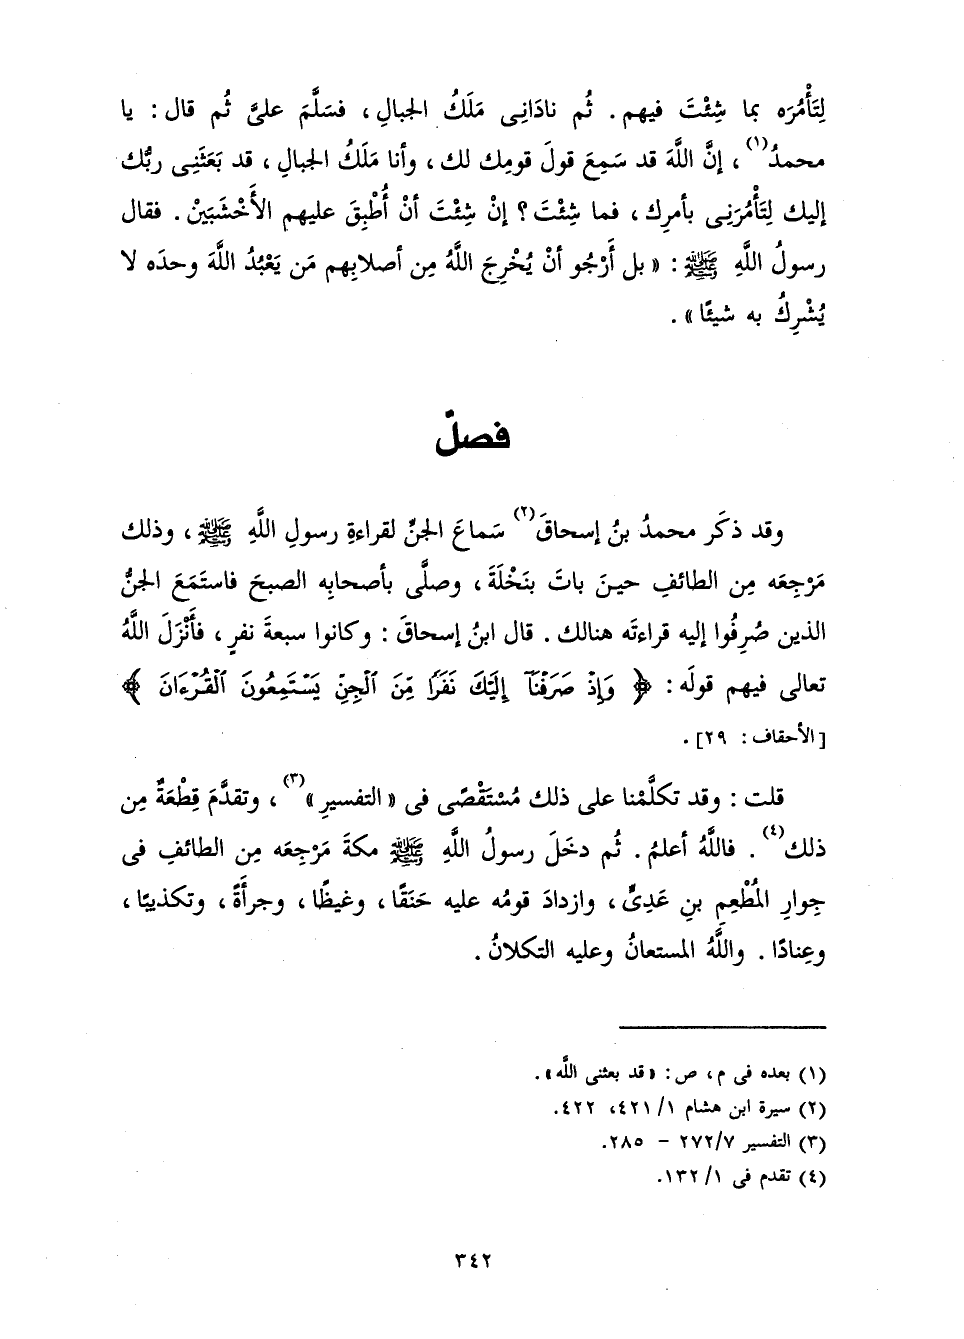 لِتَأْمُرَه بما شِئْتَ فيهم. ثُم نادَانِى مَلَكُ الجبالِ، فسَلَّمَ علىَّ ثُم قال: يا
محمدُ(١)، إنَّ اللَّهَ قد سَمِعَ قولَ قومِك لك، وأنا مَلَكُ الجبالِ، قد بَعَثَنِى ربُّك
إليك لِتَأْمُرَنِى بأمرِك، فما شِئْتَ؟ إنْ شِئْتَ أنْ أُطْبِقَ عليهم الأَخْشَبَيْنْ. فقال
رسولُ اللَّهِ ﷺ: «بل أَرْجُو أنْ يُخْرِجَ اللَّهُ مِن أصلابِهم مَن يَعْبُدُ اللَّهَ وحدَه لا
يُشْرِكُ به شيئًا».
فصلٌ
وقد ذكَر محمدُ بنُ إسحاقَ(٢) سَماعَ الجنِّ لقراءةِ رسولِ اللَّهِ ﷺ، وذلك
مَرْجِعَه مِن الطائفِ حينَ باتَ بنَخْلَةَ، وصلَّى بأصحابِه الصبحَ فاستَمَعَ الجنُّ
الذين صُرِفُوا إليه قراءتَه هنالك. قال ابنُ إسحاقَ: وكانوا سبعةَ نفرٍ، فأَنْزَلَ اللَّهُ
تعالى فيهم قولَه: ﴿وَإِذْ صَرَفْنَآ إِلَيْكَ نَفَرًا مِّنَ ٱلْجِنِّ يَسْتَمِعُونَ ٱلْقُرْءَانَ﴾
[الأحقاف: ٢٩].
قلت: وقد تكلَّمْنا على ذلك مُسْتَقْصًى فى «التفسيرِ»(٣)، وتقدَّمَ قِطْعَةٌ مِن
ذلك(٤). فاللَّهُ أعلمُ. ثُم دخَلَ رسولُ اللَّهِ ﷺ مكةَ مَرْجِعَه مِن الطائفِ فى
جِوارِ المُطْعِمِ بنِ عَدِىٍّ، وازدادَ قومُه عليه حَنَقًا، وغيظًا، وجرأَةً، وتكذيبًا،
وعِنادًا. واللَّهُ المستعانُ وعليه التكلانُ.
(١) بعده فى م، ص: «قد بعثنى الله».
(٢) سيرة ابن هشام ١/ ٤٢١، ٤٢٢.
(٣) التفسير ٢٧٢/٧ – ٢٨٥.
(٤) تقدم فى ١/ ١٣٢.
٣٤٢